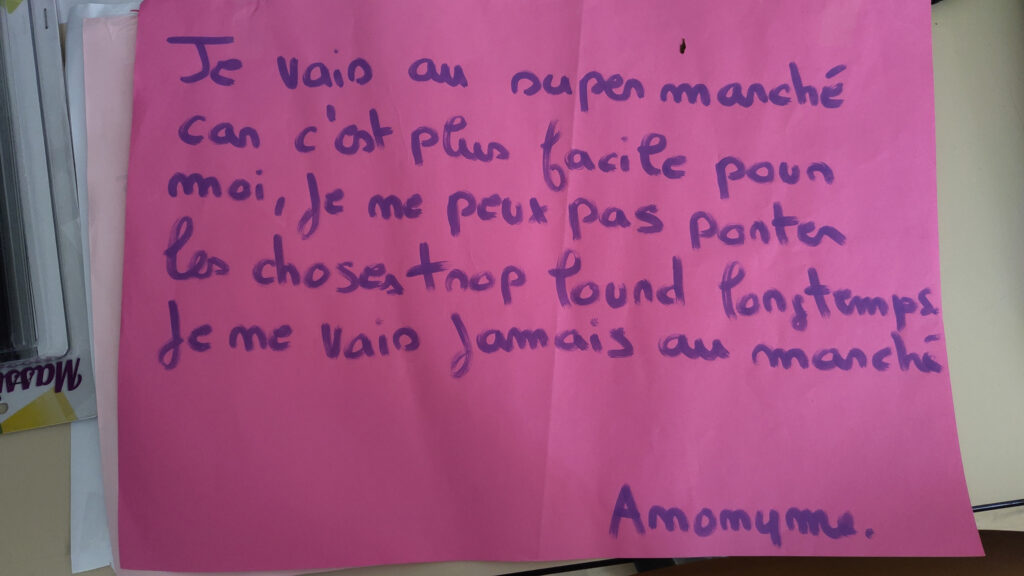 Je vais au super marché
car c'est plus facile pour
moi, Je ne peux pas porter
les choses trop lourd longtemps.
Je ne vais Jamais au marché
Anonyme.